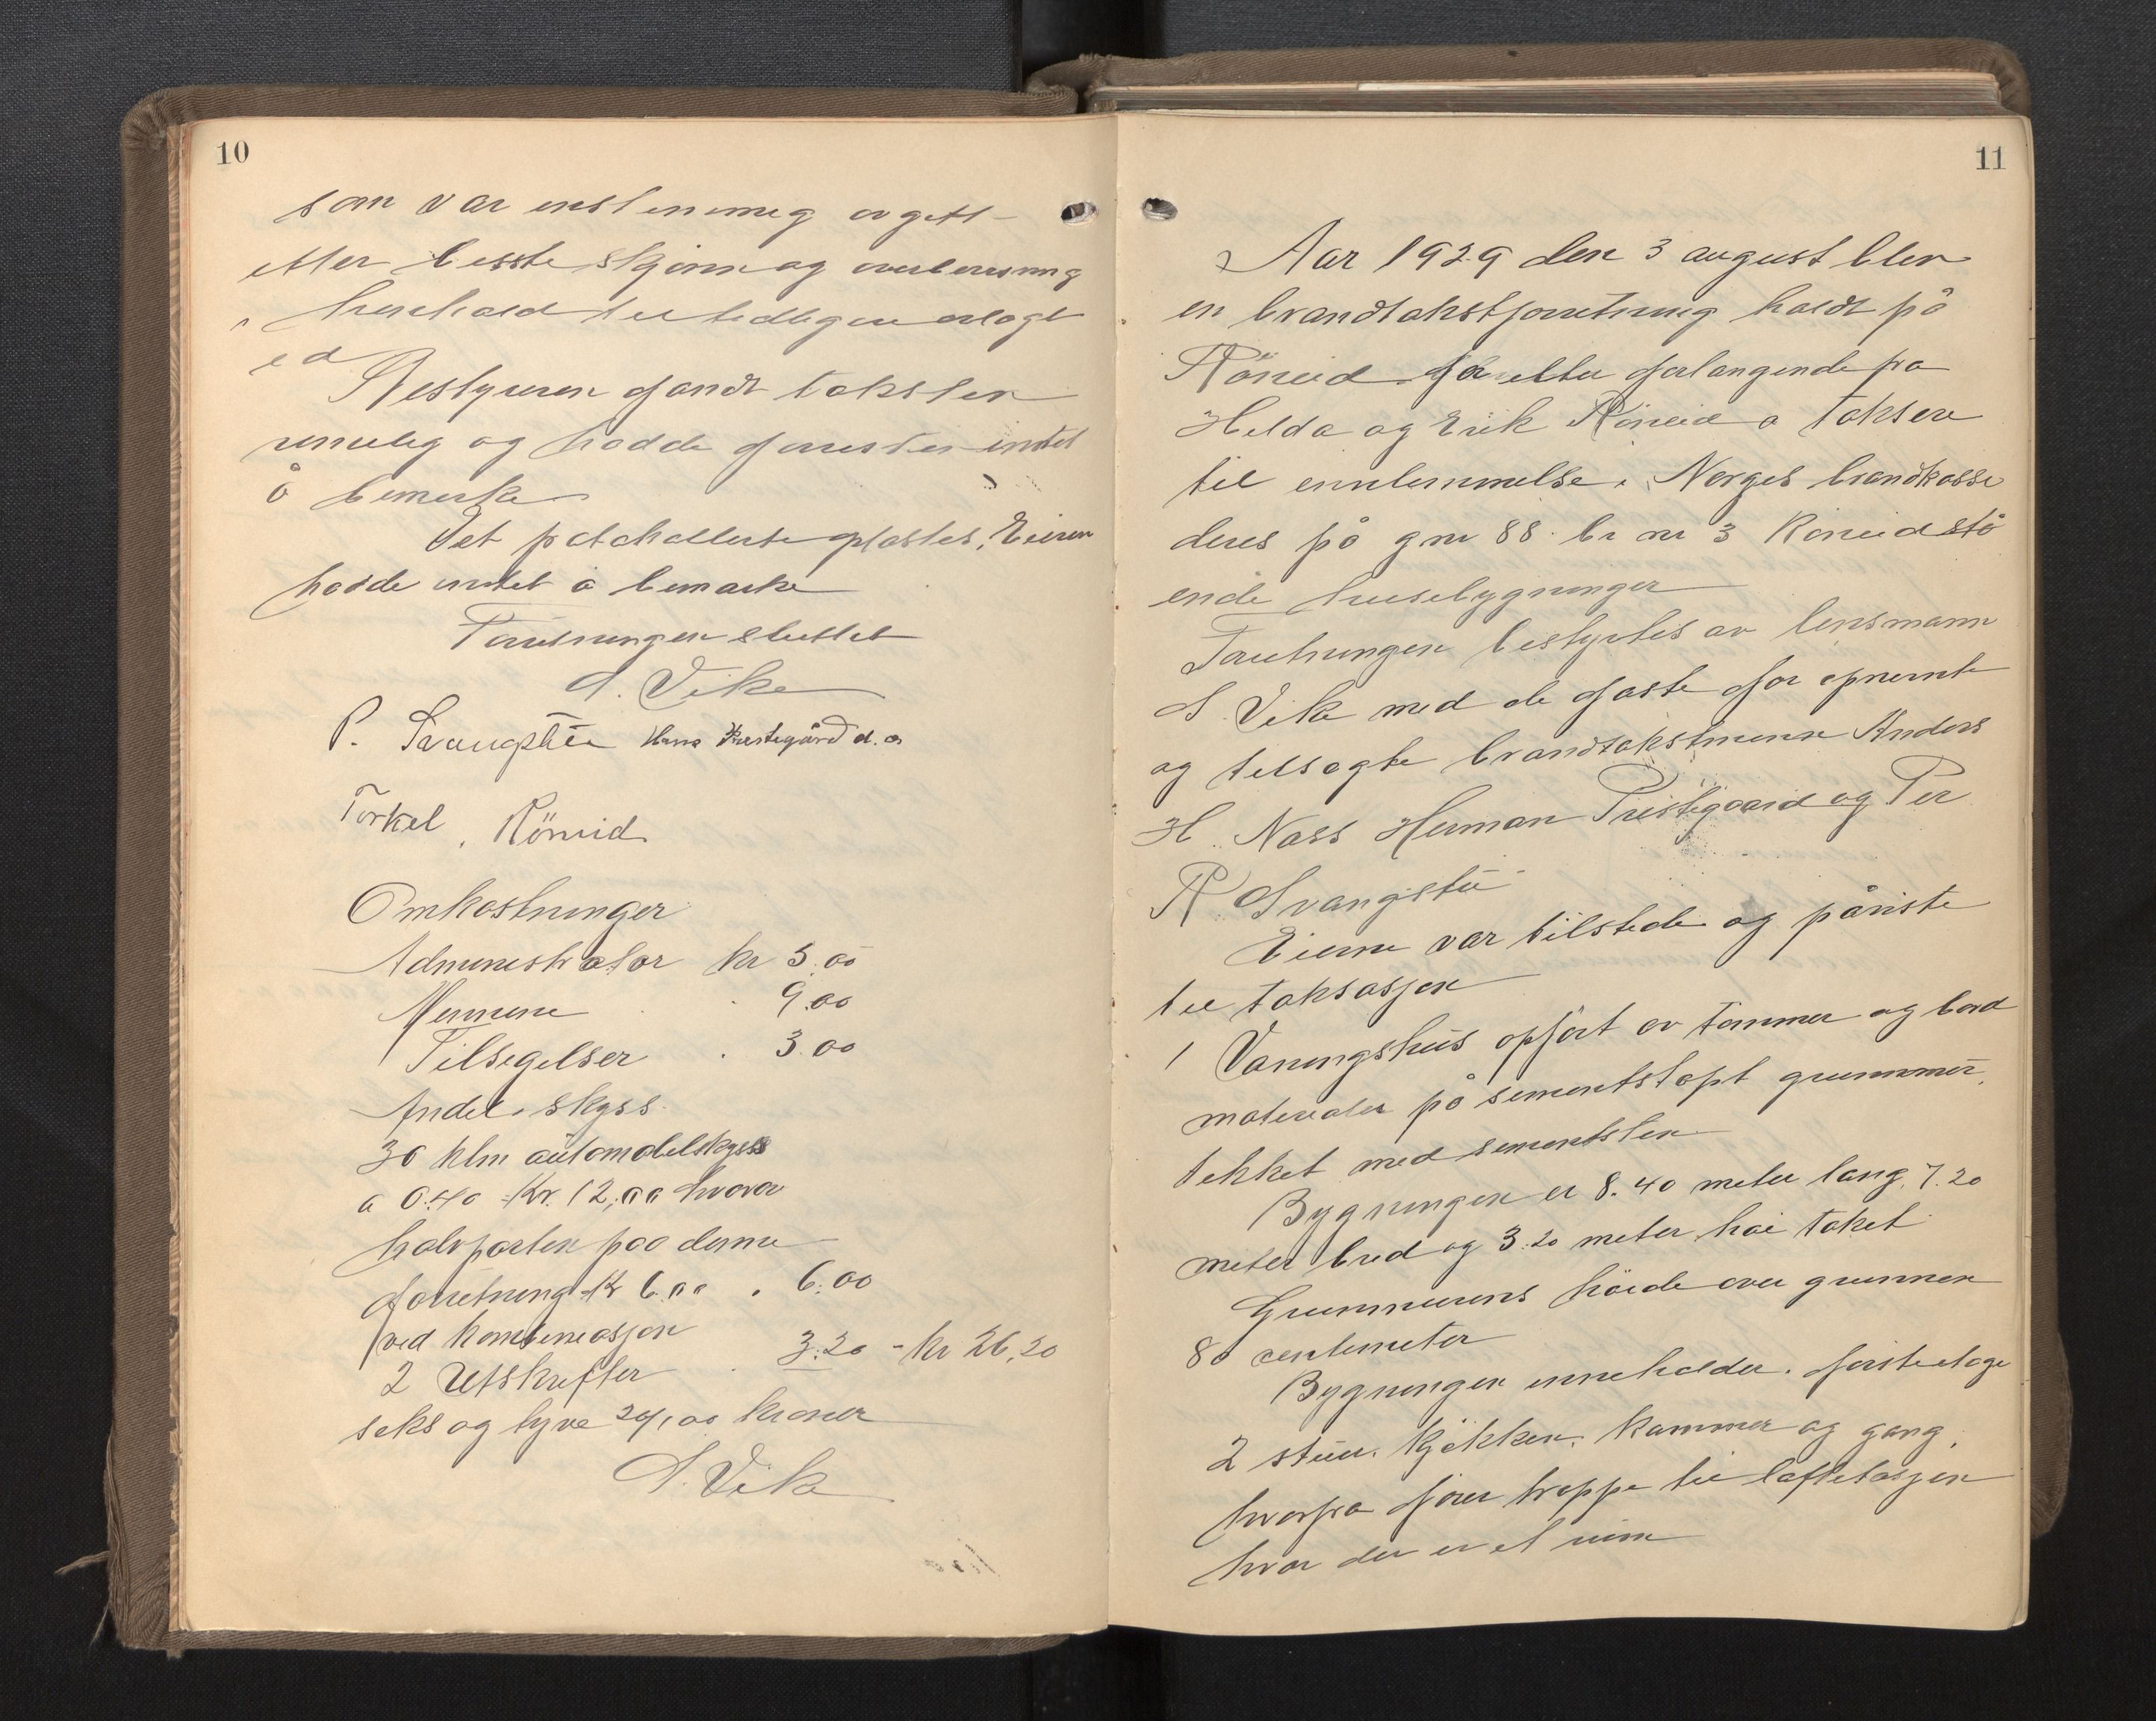 10
som var enstemmig avgitt
etter beste skjønn og overbevisning
i henhold til tidligere avlagt
ed
Bestyreren fandt taksten
rimelig og hadde forresten intet
å bemerke
Det protokollerte oplæstes, Eieren
hadde intet å bemærke
Forretningen sluttet
S. Vike
P. Svangstu Herm Prestegård d. a
Torkel Röneid
Omkostninger
Administrator kr 5.00
Mennene . 9.00
Tilsigelser . 3.00
Andel i skyss
30 klm automobilskyss
a 0.40 Kr. 12,00 hvorav
halvparten paa denne
forretning kr 6.00 . 6.00
ved kombinasjon
2 Utskrifter . 3.20 - kr 26,20
seks og tyve 20/100 kroner
S. Vik
11
Aar 1929 den 3 august blev
en brandtakstforretning holdt på
Röneid for etter forlangende fra
Helda og Erik Röneid a taksere
til innlemmelse i Norges brandkasse
deres på gnr 88 br nr 3 Röneid stå
ende husebygninger
Forretningen bestyrtes av lensmann
S. Vike med de faste før opnevnte
og tilsagte brandtakstmenn Anders
H. Nass Herman Prestegaard og Per
R Svangstu
Eierne var tilstede og påviste
til taksasjon
1 Vaningshus opført av tømmer og bord
materialer på sementstøpt grunnmur,
tekket med sementsten
Bygningen er 8.40 meter lang, 7.20
meter bred og 3.20 meter høi taket
Grunnmurens höide over grunnen
80 centimeter
Bygningen inneholder i første etage
2 stuer, kjøkken, kammer og gang,
hvorfra fører trappe til loftetasjen
hvor der er et rum